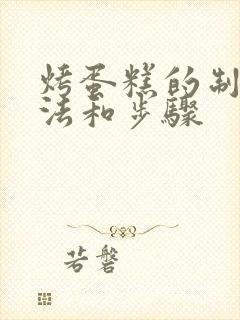 烤蛋糕的制
法和步骤
若磐